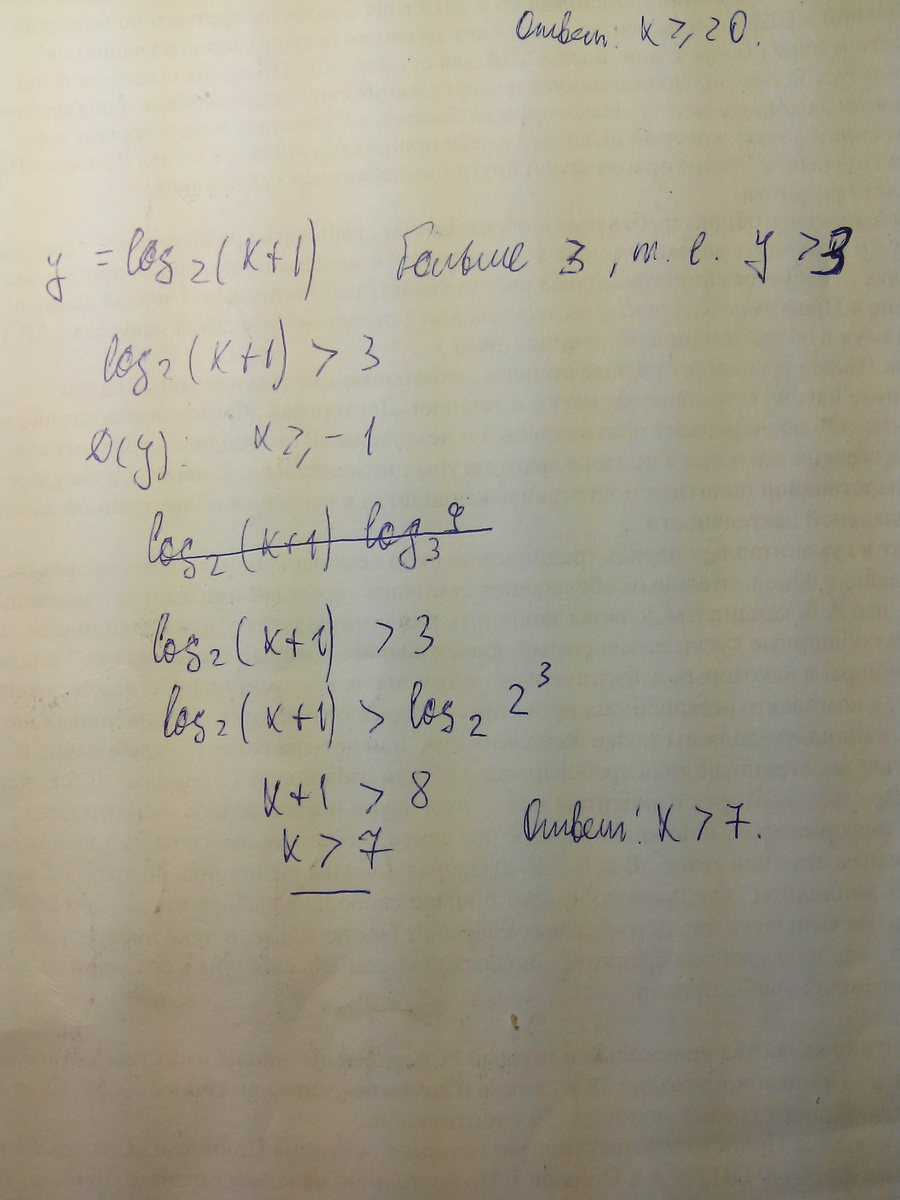 Ответ: x ≥ 20.
y = log₂(x+1) больше 3, т. е. y > 3
log₂(x+1) > 3
D(y): x ≥ -1
log₂(x+1) log₃
log₂(x+1) > 3
log₂(x+1) > log₂ 2³
x+1 > 8
x > 7
Ответ: x > 7.